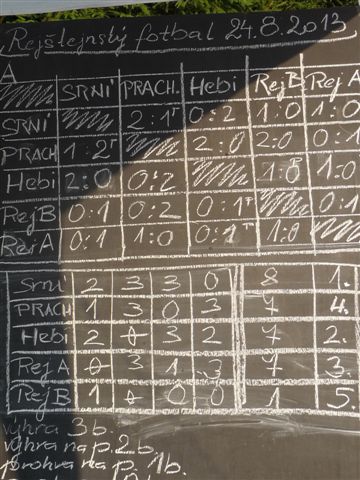 Rejštejnský fotbal 24.8.2013
A
SRNÍ PRACH. Hebi Rej B Rej A
SRNÍ 2:1P 0:2 1:0 1:0
PRACH 1:2P 2:0 2:0 0:1
Hebi 2:0 0:2 1:0P 1:0
Rej B 0:1 0:2 0:1P 0:1
Rej A 0:1 1:0 0:1 1:0
Srní 2 3 3 0 8 1.
PRACH 1 3 0 3 7 4.
Hebi 2 0 3 2 7 2.
Rej A 0 3 1 3 7 3.
Rej B 1 0 0 0 1 5.
výhra 3b.
výhra na p. 2b.
prohra na p. 1b.